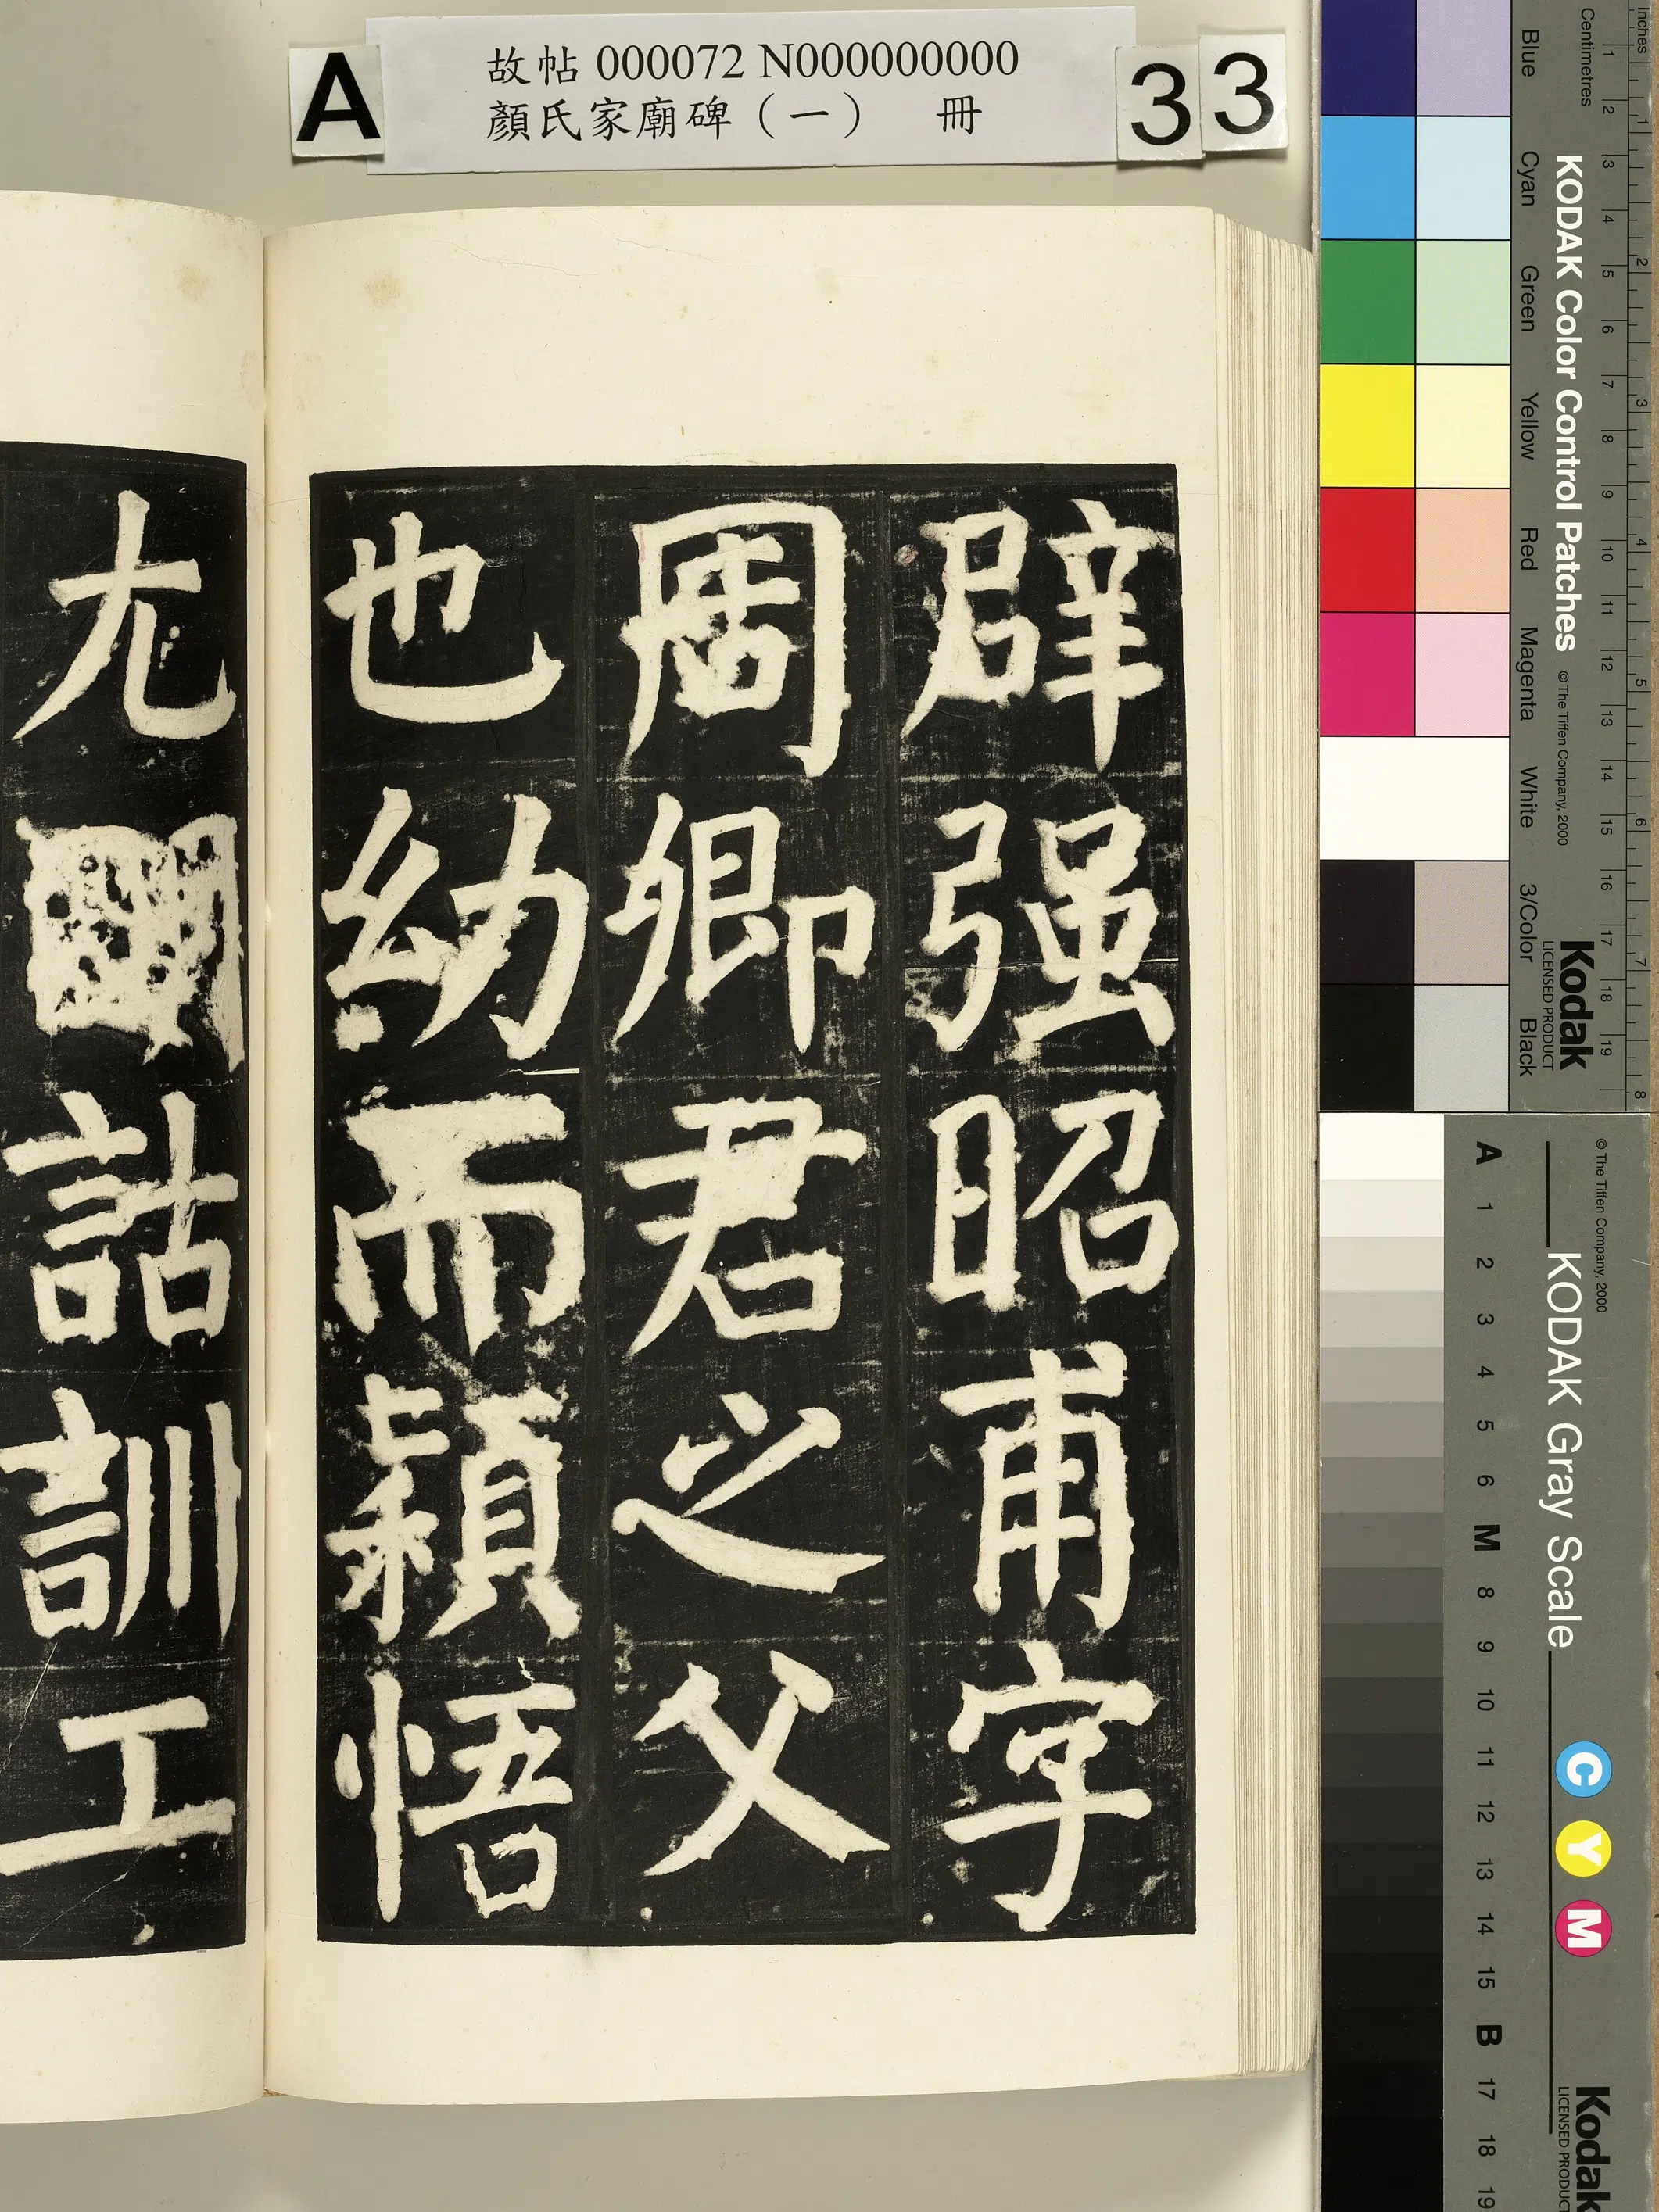 A
故帖 000072 N000000000
顏氏家廟碑（一） 冊
3 3
辟强昭甫字
周卿君之父
也幼而穎悟
尤
詁訓工
Inches 1 2 3 4 5 6 7 8
Centimetres 1 2 3 4 5 6 7 8 9 10 11 12 13 14 15 16 17 18 19
KODAK Color Control Patches © The Tiffen Company, 2000
Kodak
LICENSED PRODUCT
Blue Cyan Green Yellow Red Magenta White 3/Color Black
© The Tiffen Company, 2000
KODAK Gray Scale
C Y M
Kodak
LICENSED PRODUCT
A 1 2 3 4 5 6 M 8 9 10 11 12 13 14 15 B 17 18 19